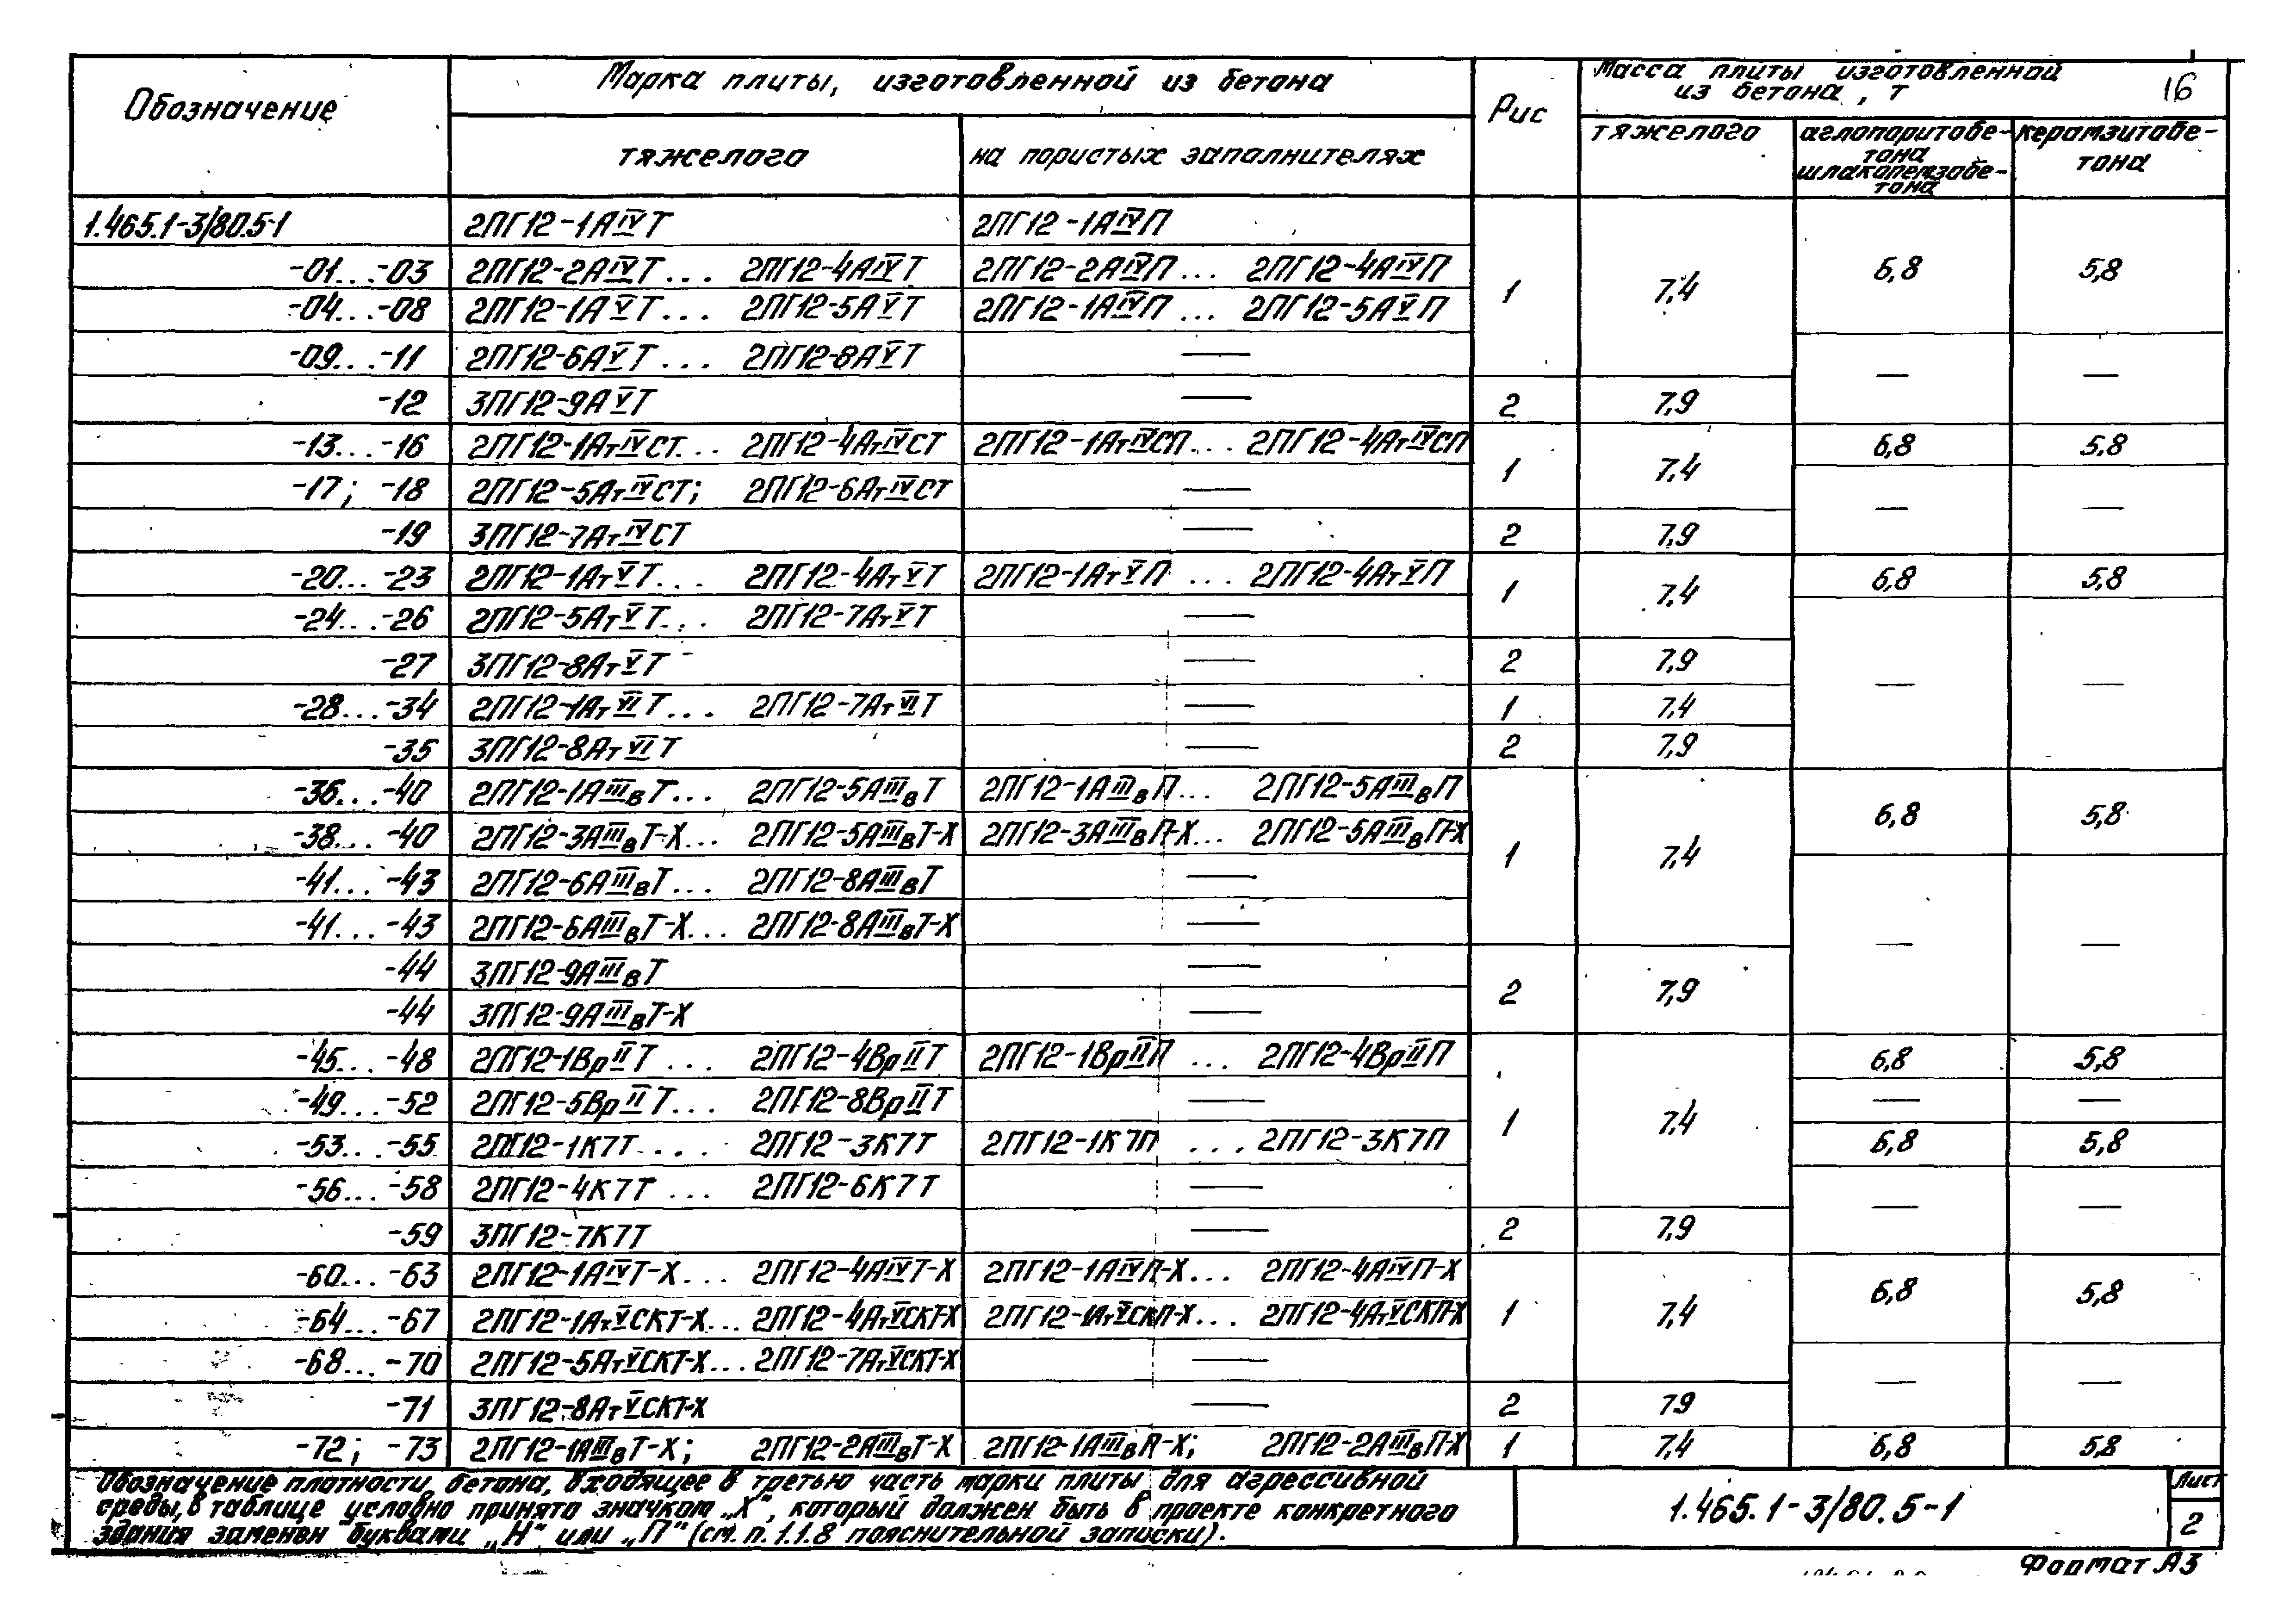 16
Обозначение
Марка плиты, изготовленной из бетона
Рис
Масса плиты изготовленной
из бетона, т
тяжелого
на пористых заполнителях
тяжелого
аглопоритобе-
тона
шлакопемзобе-
тона
керамзитобе-
тона
1.465.1-3/80.5-1 2ПГ12-1АIVТ 2ПГ12-1АIVП
-01...-03 2ПГ12-2АIVТ... 2ПГ12-4АIVТ 2ПГ12-2АIVП... 2ПГ12-4АIVП 1 7,4 6,8 5,8
-04...-08 2ПГ12-1АVТ... 2ПГ12-5АVТ 2ПГ12-1АIVП... 2ПГ12-5АVП
-09...-11 2ПГ12-6АVТ... 2ПГ12-8АVТ — — —
-12 3ПГ12-9АVТ — 2 7,9
-13...-16 2ПГ12-1АтIVСТ... 2ПГ12-4АтIVСТ 2ПГ12-1АтIVСП... 2ПГ12-4АтIVСП 1 7,4 6,8 5,8
-17; -18 2ПГ12-5АтIVСТ; 2ПГ12-6АтIVСТ — — —
-19 3ПГ12-7АтIVСТ — 2 7,9
-20...-23 2ПГ12-1АтVТ... 2ПГ12-4АтVТ 2ПГ12-1АтVП... 2ПГ12-4АтVП 1 7,4 6,8 5,8
-24...-26 2ПГ12-5АтVТ... 2ПГ12-7АтVТ —
-27 3ПГ12-8АтVТ — 2 7,9 — —
-28...-34 2ПГ12-1АтVIТ... 2ПГ12-7АтVIТ — 1 7,4
-35 3ПГ12-8АтVIТ — 2 7,9
-36...-40 2ПГ12-1АIIIвТ... 2ПГ12-5АIIIвТ 2ПГ12-1АIIIвП... 2ПГ12-5АIIIвП 1 7,4 6,8 5,8
-38...-40 2ПГ12-3АIIIвТ-Х... 2ПГ12-5АIIIвТ-Х 2ПГ12-3АIIIвП-Х... 2ПГ12-5АIIIвП-Х
-41...-43 2ПГ12-6АIIIвТ... 2ПГ12-8АIIIвТ —
-41...-43 2ПГ12-6АIIIвТ-Х... 2ПГ12-8АIIIвТ-Х — — —
-44 3ПГ12-9АIIIвТ — 2 7,9
-44 3ПГ12-9АIIIвТ-Х —
-45...-48 2ПГ12-1ВрIIТ... 2ПГ12-4ВрIIТ 2ПГ12-1ВрIIП... 2ПГ12-4ВрIIП 1 7,4 6,8 5,8
-49...-52 2ПГ12-5ВрIIТ... 2ПГ12-8ВрIIТ — — —
-53...-55 2ПГ12-1К7Т.... 2ПГ12-3К7Т 2ПГ12-1К7П ... 2ПГ12-3К7П 6,8 5,8
-56...-58 2ПГ12-4К7Т ... 2ПГ12-6К7Т — — —
-59 3ПГ12-7К7Т — 2 7,9
-60...-63 2ПГ12-1АIVТ-Х... 2ПГ12-4АIVТ-Х 2ПГ12-1АIVП-Х... 2ПГ12-4АIVП-Х 1 7,4 6,8 5,8
-64...-67 2ПГ12-1АтVСКТ-Х... 2ПГ12-4АтVСКТ-Х 2ПГ12-1АтVСКП-Х... 2ПГ12-4АтVСКП-Х
-68...-70 2ПГ12-5АтVСКТ-Х... 2ПГ12-7АтVСКТ-Х — — —
-71 3ПГ12-8АтVСКТ-Х — 2 79
-72; -73 2ПГ12-1АIIIвТ-Х; 2ПГ12-2АIIIвТ-Х 2ПГ12-1АIIIвП-Х; 2ПГ12-2АIIIвП-Х 1 7,4 6,8 5,8
Обозначение плотности бетона, входящее в третью часть марки плиты для агрессивной
среды, в таблице условно принято значком „Х", который должен быть в проекте конкретного
здания заменен буквами „Н" или „П" (см. п. 1.1.8 пояснительной записки).
1.465.1-3/80.5-1
Лист
2
Формат А3